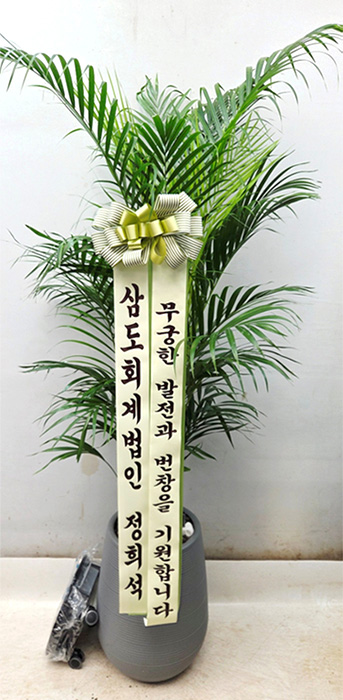 삼도회계법인 정희석
무궁한 발전과 번창을 기원합니다